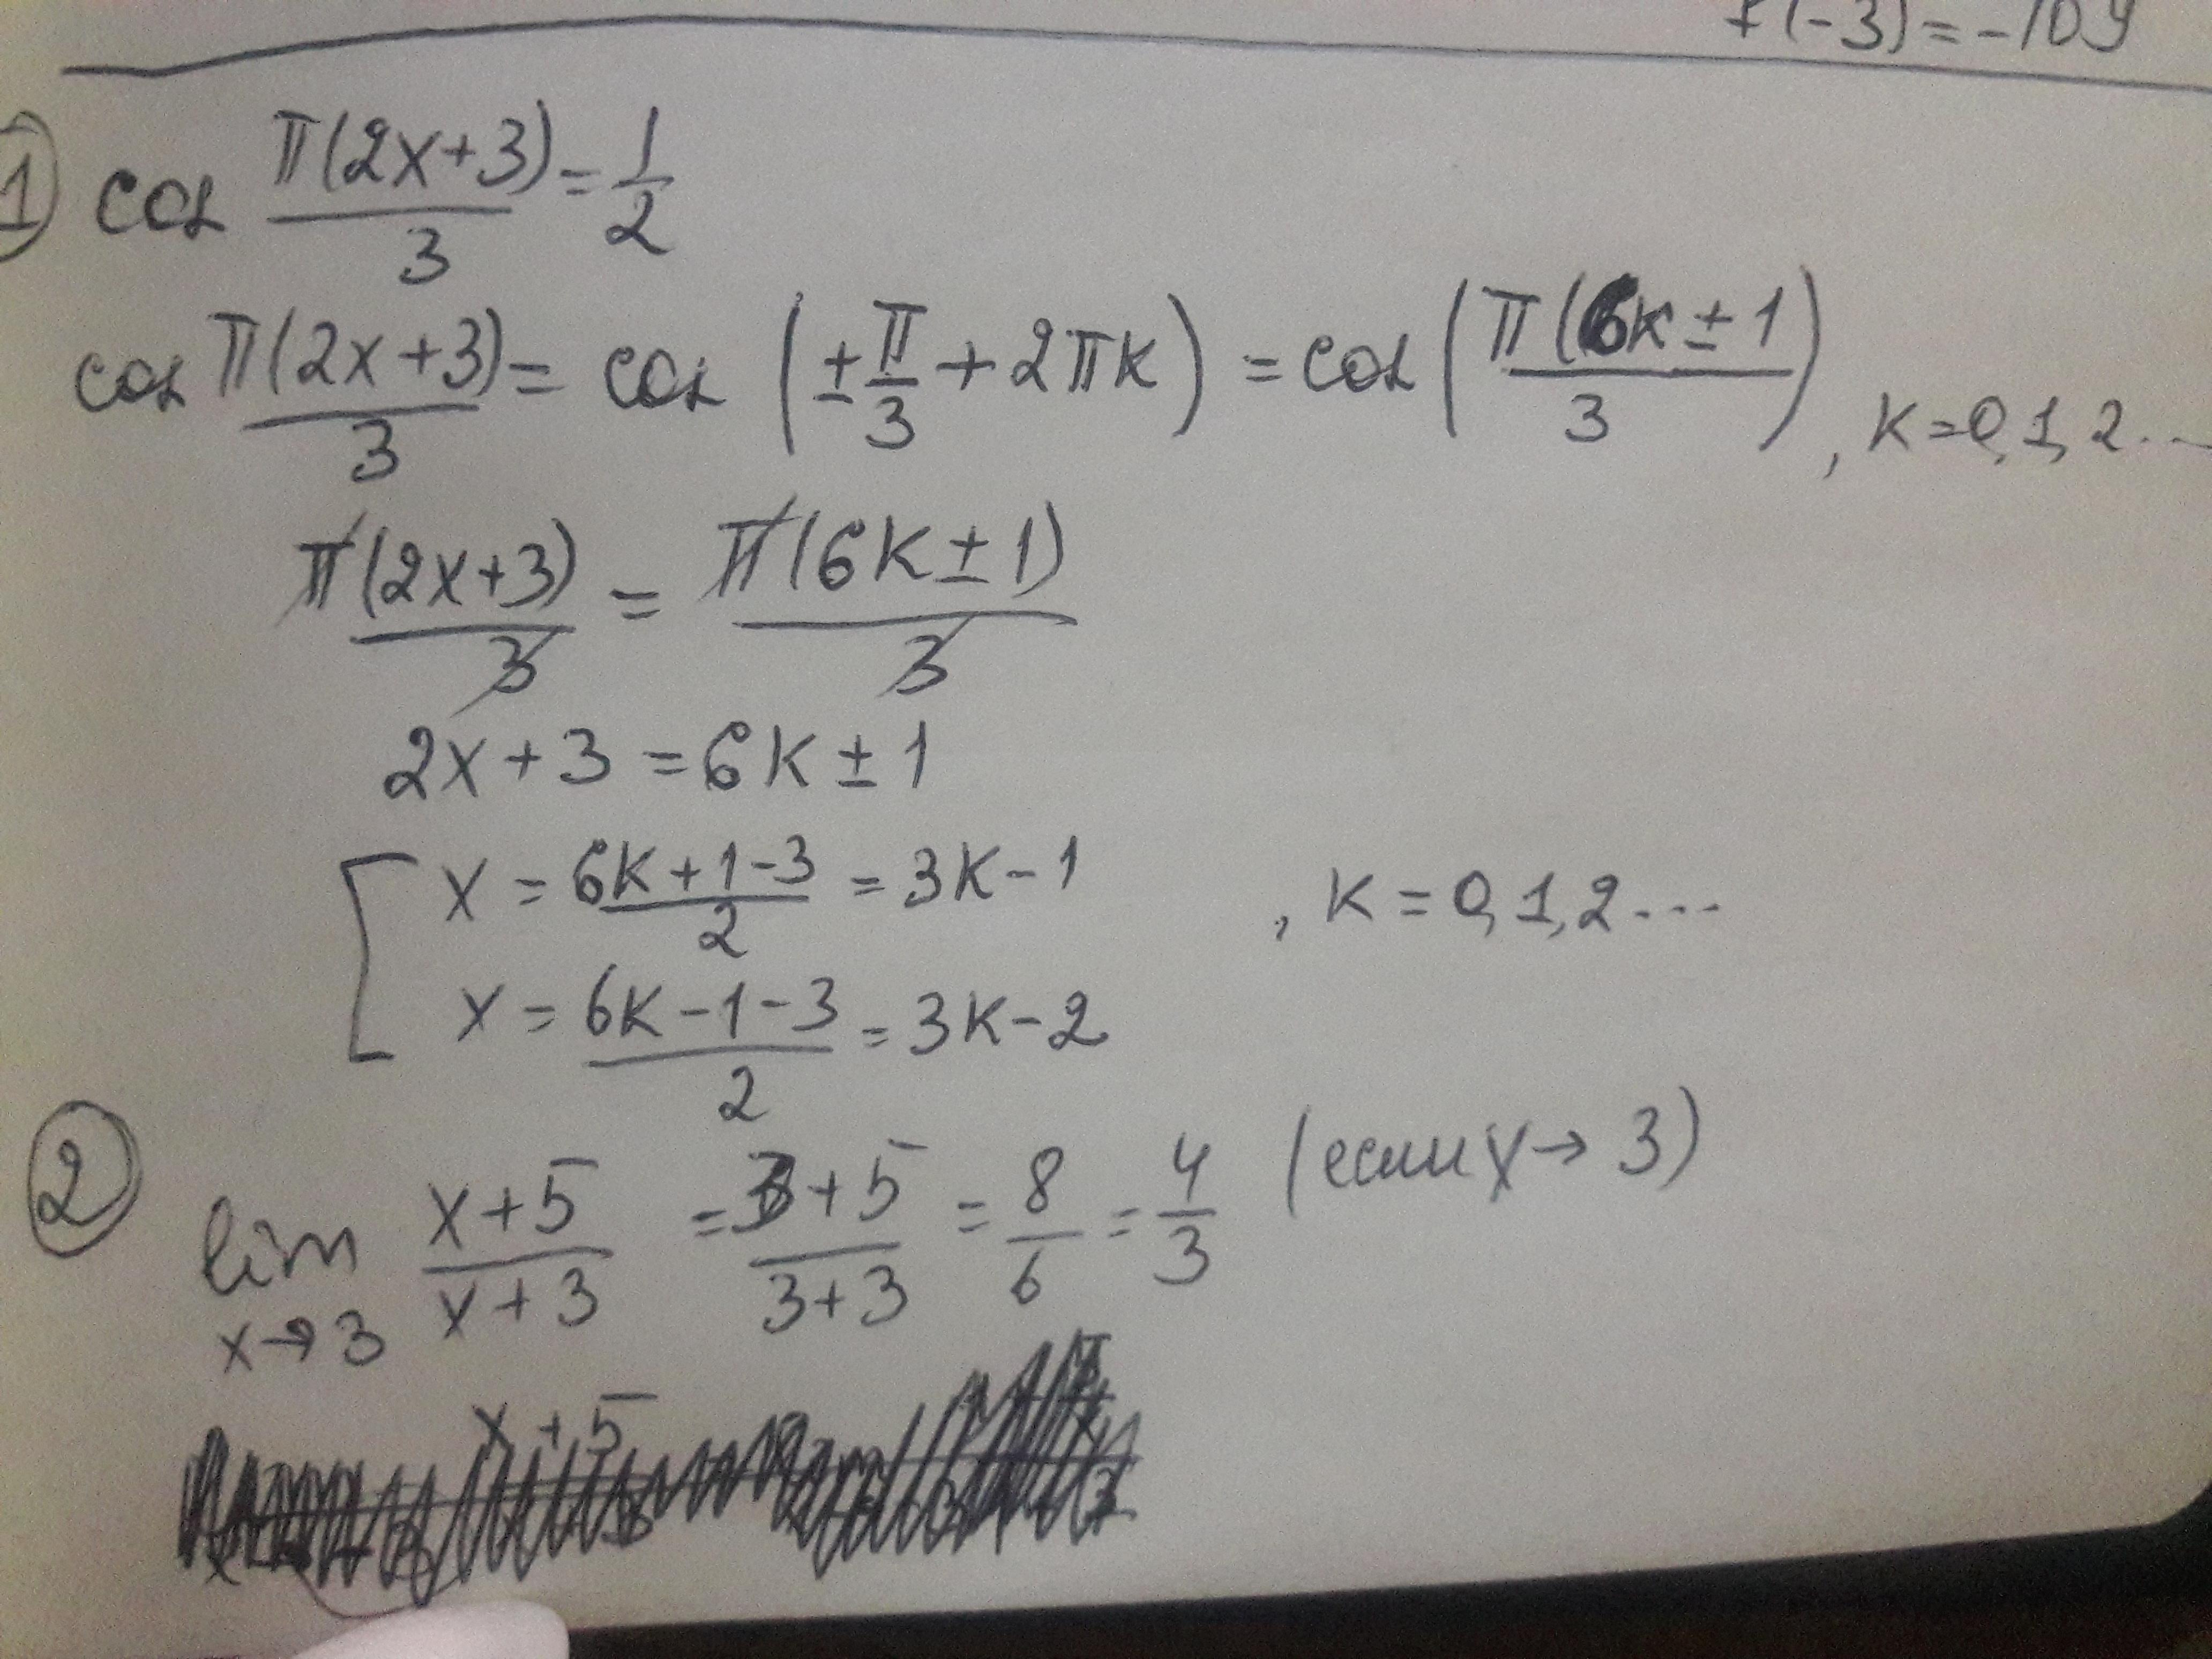 f(-3) = -109
① cos π(2x+3)/3 = 1/2
cos π(2x+3)/3 = cos (± π/3 + 2πk) = cos (π(6k ± 1)/3), k=0,1,2...
π(2x+3)/3 = π(6k ± 1)/3
2x+3 = 6k ± 1
[ x = (6k+1-3)/2 = 3k-1 , k = 0,1,2...
x = (6k-1-3)/2 = 3k-2
② lim x→3 (x+5)/(x+3) = (3+5)/(3+3) = 8/6 = 4/3 (если x→3)
x+5